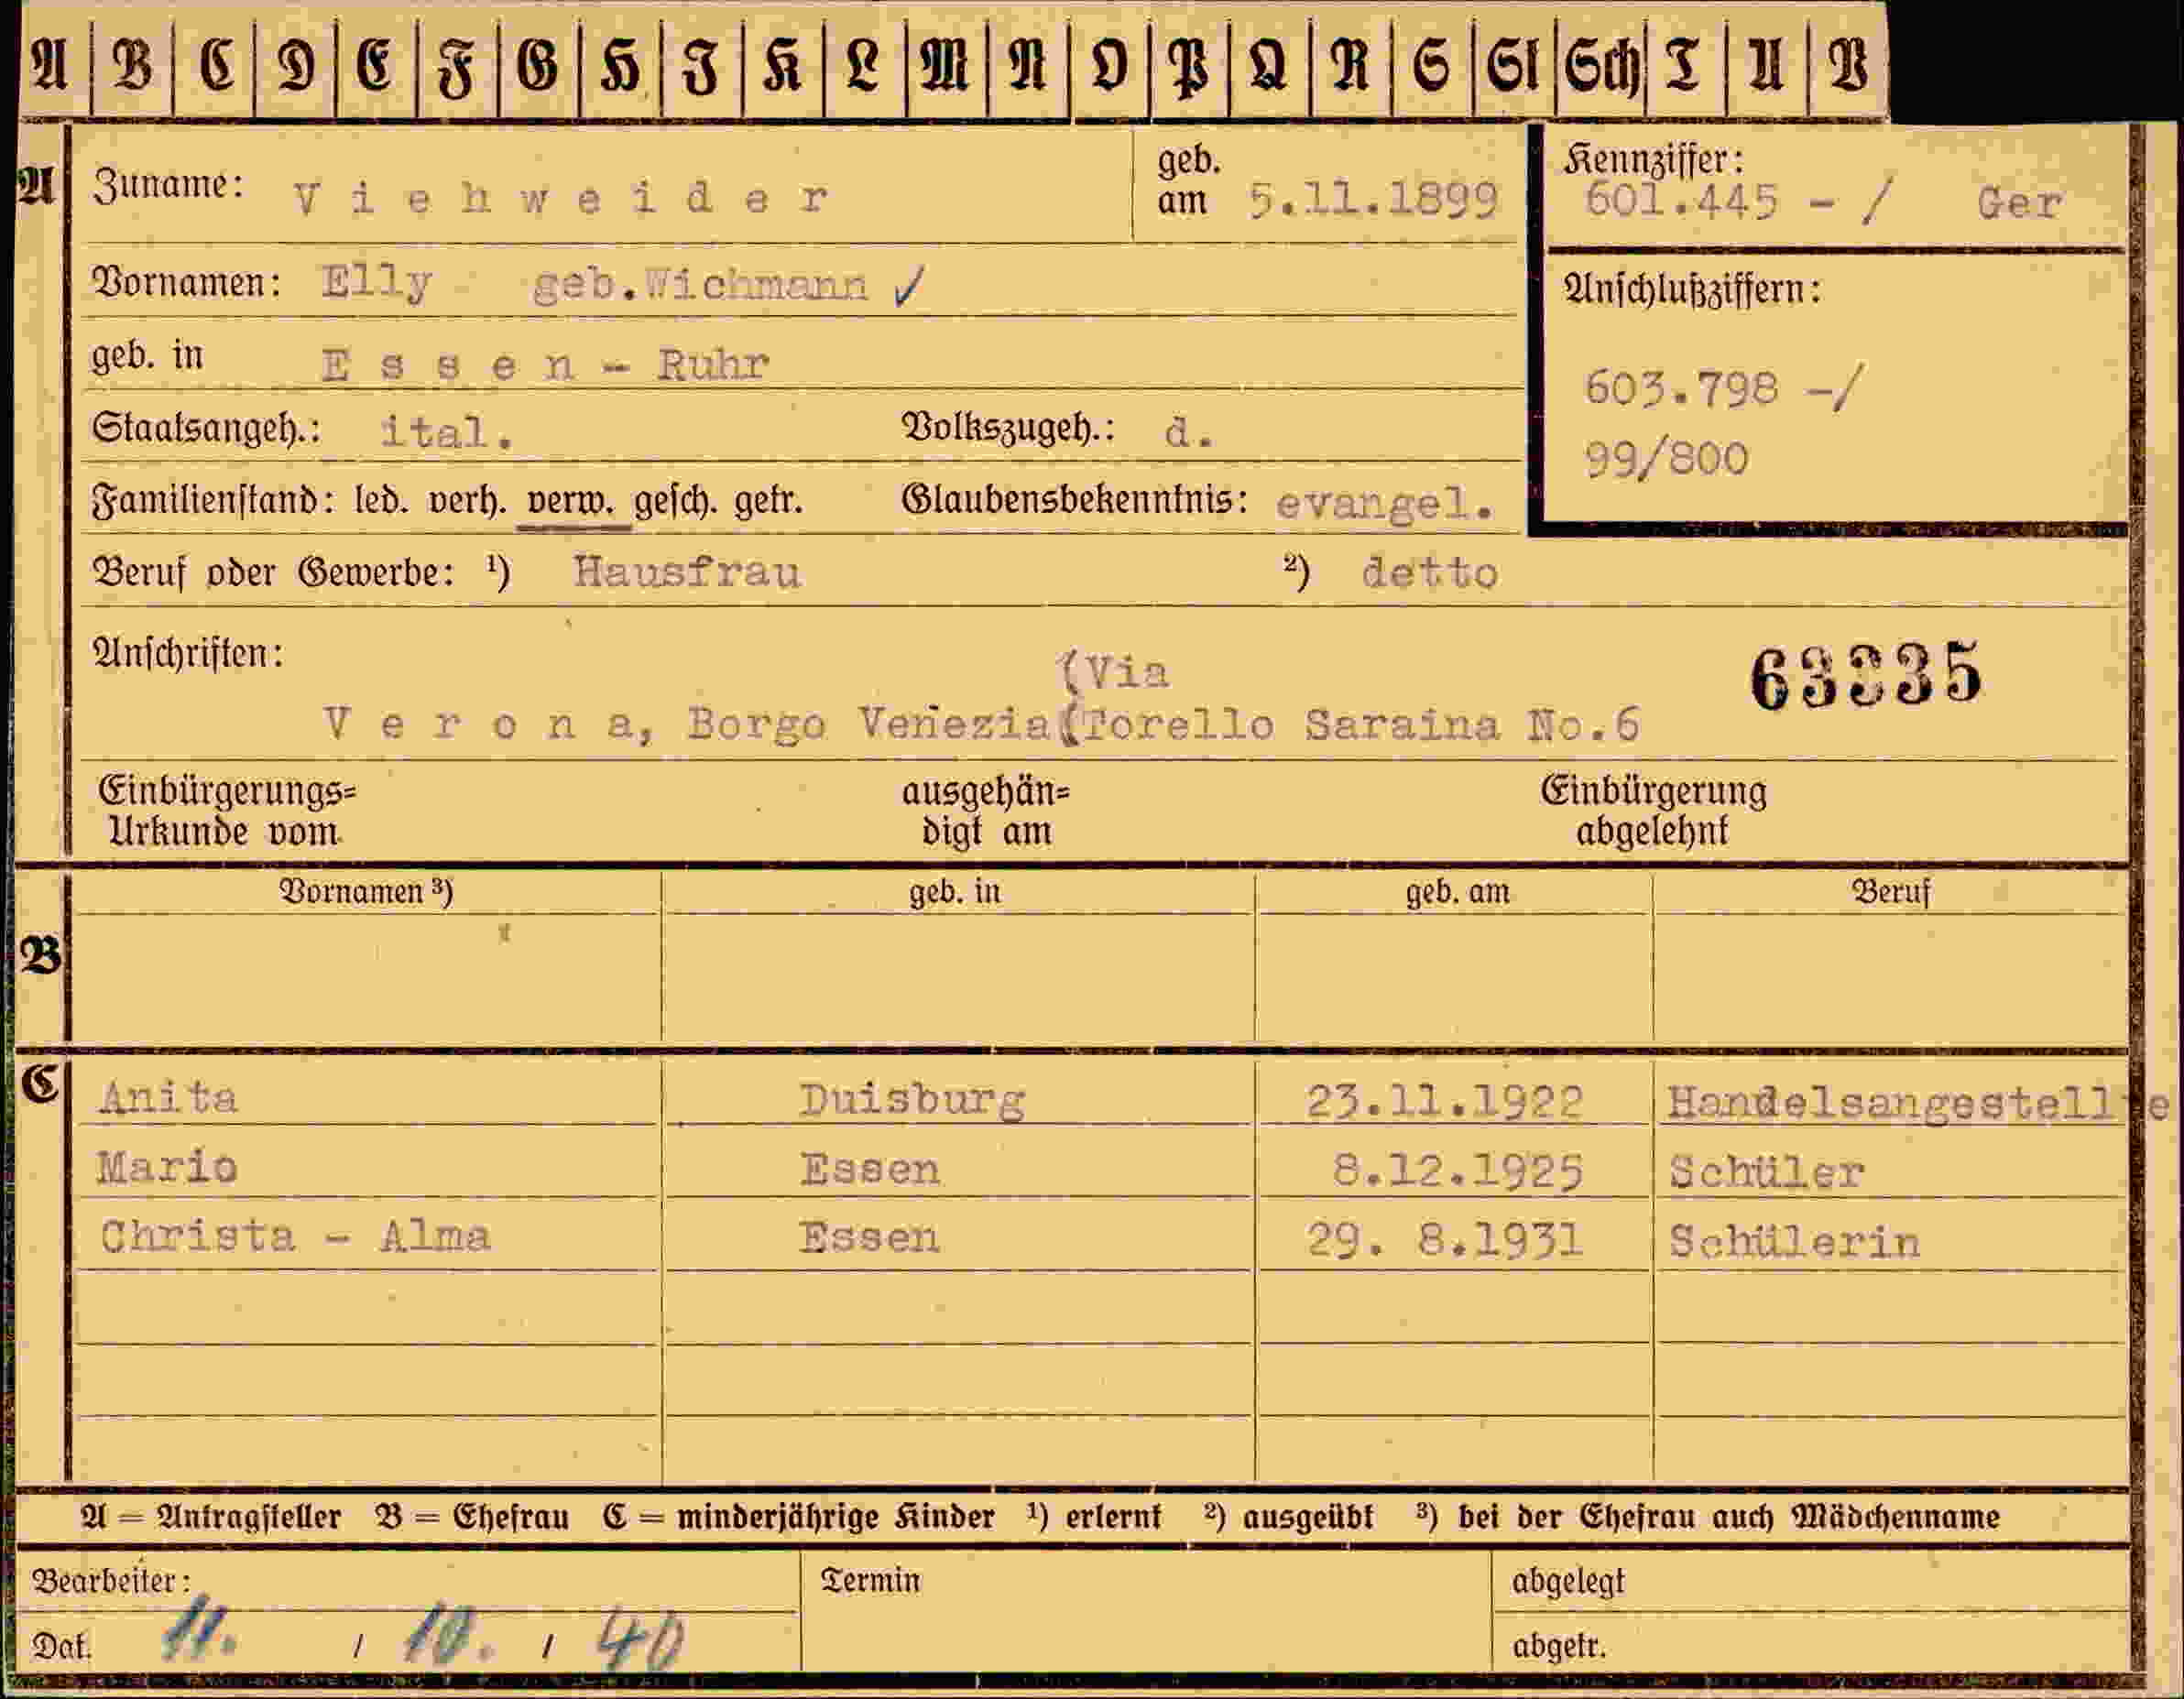 A B C D E F G H I K L M N O P Q R S St Sch T U V
A Zuname: Viehweider geb. am 5.11.1899 Kennziffer: 601.445 - / Ger
Vornamen: Elly geb.Wichmann ✓ Anschlußziffern:
geb. in Essen - Ruhr 603.798 -/
Staatsangeh.: ital. Volkszugeh.: d. 99/800
Familienstand: led. verh. verw. gesch. getr. Glaubensbekenntnis: evangel.
Beruf oder Gewerbe: ¹) Hausfrau ²) detto
Anschriften: (Via 63335
Verona, Borgo Venezia(Torello Saraina No.6
Einbürgerungs= ausgehän= Einbürgerung
Urkunde vom digt am abgelehnt
Vornamen ³) geb. in geb. am Beruf
B
C Anita Duisburg 23.11.1922 Handelsangestellte
Mario Essen 8.12.1925 Schüler
Christa - Alma Essen 29. 8.1931 Schülerin
A = Antragsteller B = Ehefrau C = minderjährige Kinder ¹) erlernt ²) ausgeübt ³) bei der Ehefrau auch Mädchenname
Bearbeiter: Termin abgelegt
Dat. 11. / 10. / 40 abgetr.